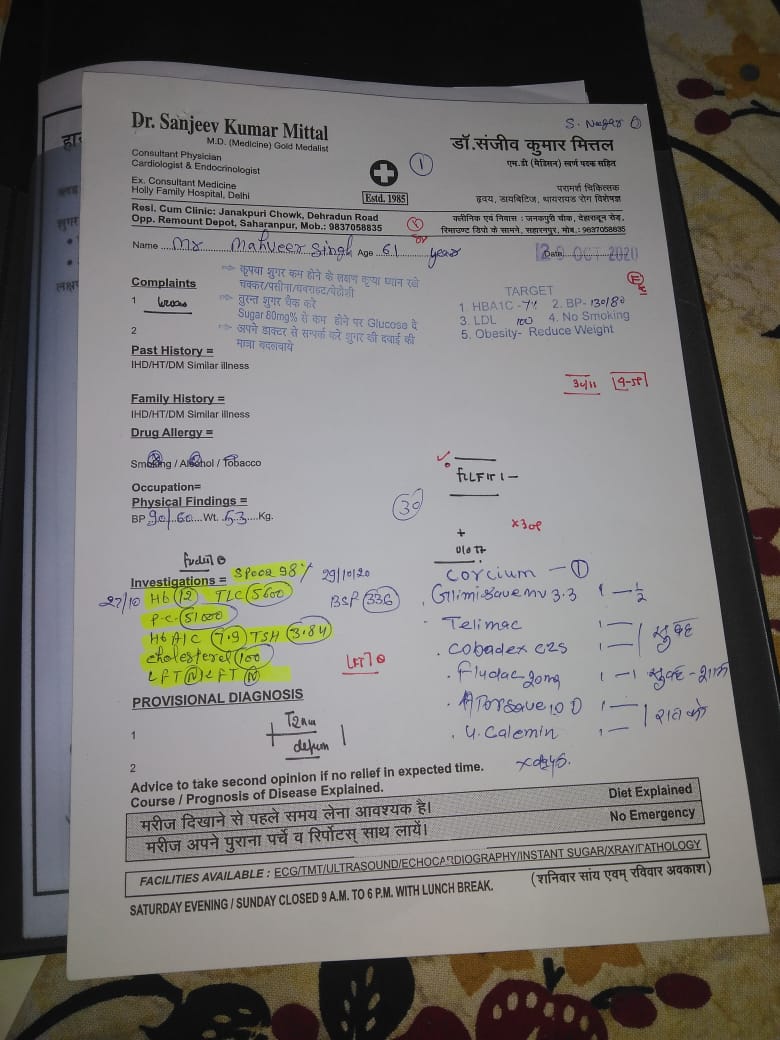 S. Nagar
Dr. Sanjeev Kumar Mittal
M.D. (Medicine) Gold Medalist
Consultant Physician
Cardiologist & Endocrinologist
Ex. Consultant Medicine
Holly Family Hospital, Delhi
Resi. Cum Clinic: Janakpuri Chowk, Dehradun Road
Opp. Remount Depot, Saharanpur, Mob.: 9837058835
1
Estd. 1985
डॉ.संजीव कुमार मित्तल
एम.डी (मेडिसन) स्वर्ण पदक सहित
परामर्श चिकित्सक
हृदय, डायबिटिज, थायरायड रोग विशेषज्ञ
क्लीनिक एवं निवास : जनकपुरी चौक, देहरादून रोड,
रिमाउण्ट डिपो के सामने, सहारनपुर, मोब.: 9837058835
Name Mr Mahveer Singh Age 61 year
Date 29 OCT 2020
Complaints
1
2
कृपया शुगर कम होने के लक्षण कृप्या ध्यान रखे
चक्कर/पसीना/घबराहट/बेहोशी
तुरन्त शुगर चैक करे
Sugar 80mg% से कम होने पर Glucose दे
अपने डाक्टर से सम्पर्क करे शुगर की दवाई की
मात्रा बदलवाये
TARGET
1. HBA1C -7% 2. BP- 130/80
3. LDL 100 4. No Smoking
5. Obesity- Reduce Weight
Past History =
IHD/HT/DM Similar illness
30/11
Family History =
IHD/HT/DM Similar illness
Drug Allergy =
Smoking / Alcohol / Tobacco
Occupation=
Physical Findings =
BP 90/60 Wt. 53 Kg.
30
+
Investigations = SPO2 98% 29/10/20
27/10 Hb 12 TLC 5600 BSR 336
P.C. 51000
HbA1C 7.9 TSH 3.84
cholesterol 100
LFT N KFT N
corcium — 1
Glimisave mv 3.3 1 — ½
Telimac 1 —
Cobadex CZS 1 — सुबह
Fludac 20mg 1 — 1 सुबह - शाम
Atorsave 10 D 1 —
U. Calemin 1 — रात को
PROVISIONAL DIAGNOSIS
1
T2DM
2
Advice to take second opinion if no relief in expected time.
Course / Prognosis of Disease Explained.
मरीज दिखाने से पहले समय लेना आवश्यक है।
मरीज अपने पुराना पर्चे व रिर्पोटस् साथ लायें।
Diet Explained
No Emergency
FACILITIES AVAILABLE : ECG/TMT/ULTRASOUND/ECHOCARDIOGRAPHY/INSTANT SUGAR/XRAY/PATHOLOGY
SATURDAY EVENING / SUNDAY CLOSED 9 A.M. TO 6 P.M. WITH LUNCH BREAK.
(शनिवार सांय एवम् रविवार अवकाश)